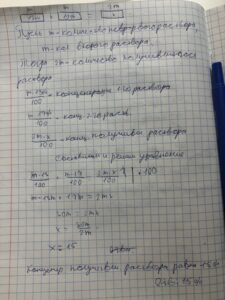 m m 2m
13% + 17% = x
Пусть m-количество первого раствора,
m-кол второго раствора,
Тогда 2m-количество полученного
раствора
m·13/100 - концентрация 1-го раствора
m·17/100 - конц 2-го раст.
2m·x/100 - конц. получившегося раствора
Составим и решим уравнение
m·13/100 + m·17/100 = 2m·x/100 | ·100
m·13 + m·17 = 2mx
30m = 2mx
x = 30m/2m
x = 15
раствора равна 15%
Ответ: 15%